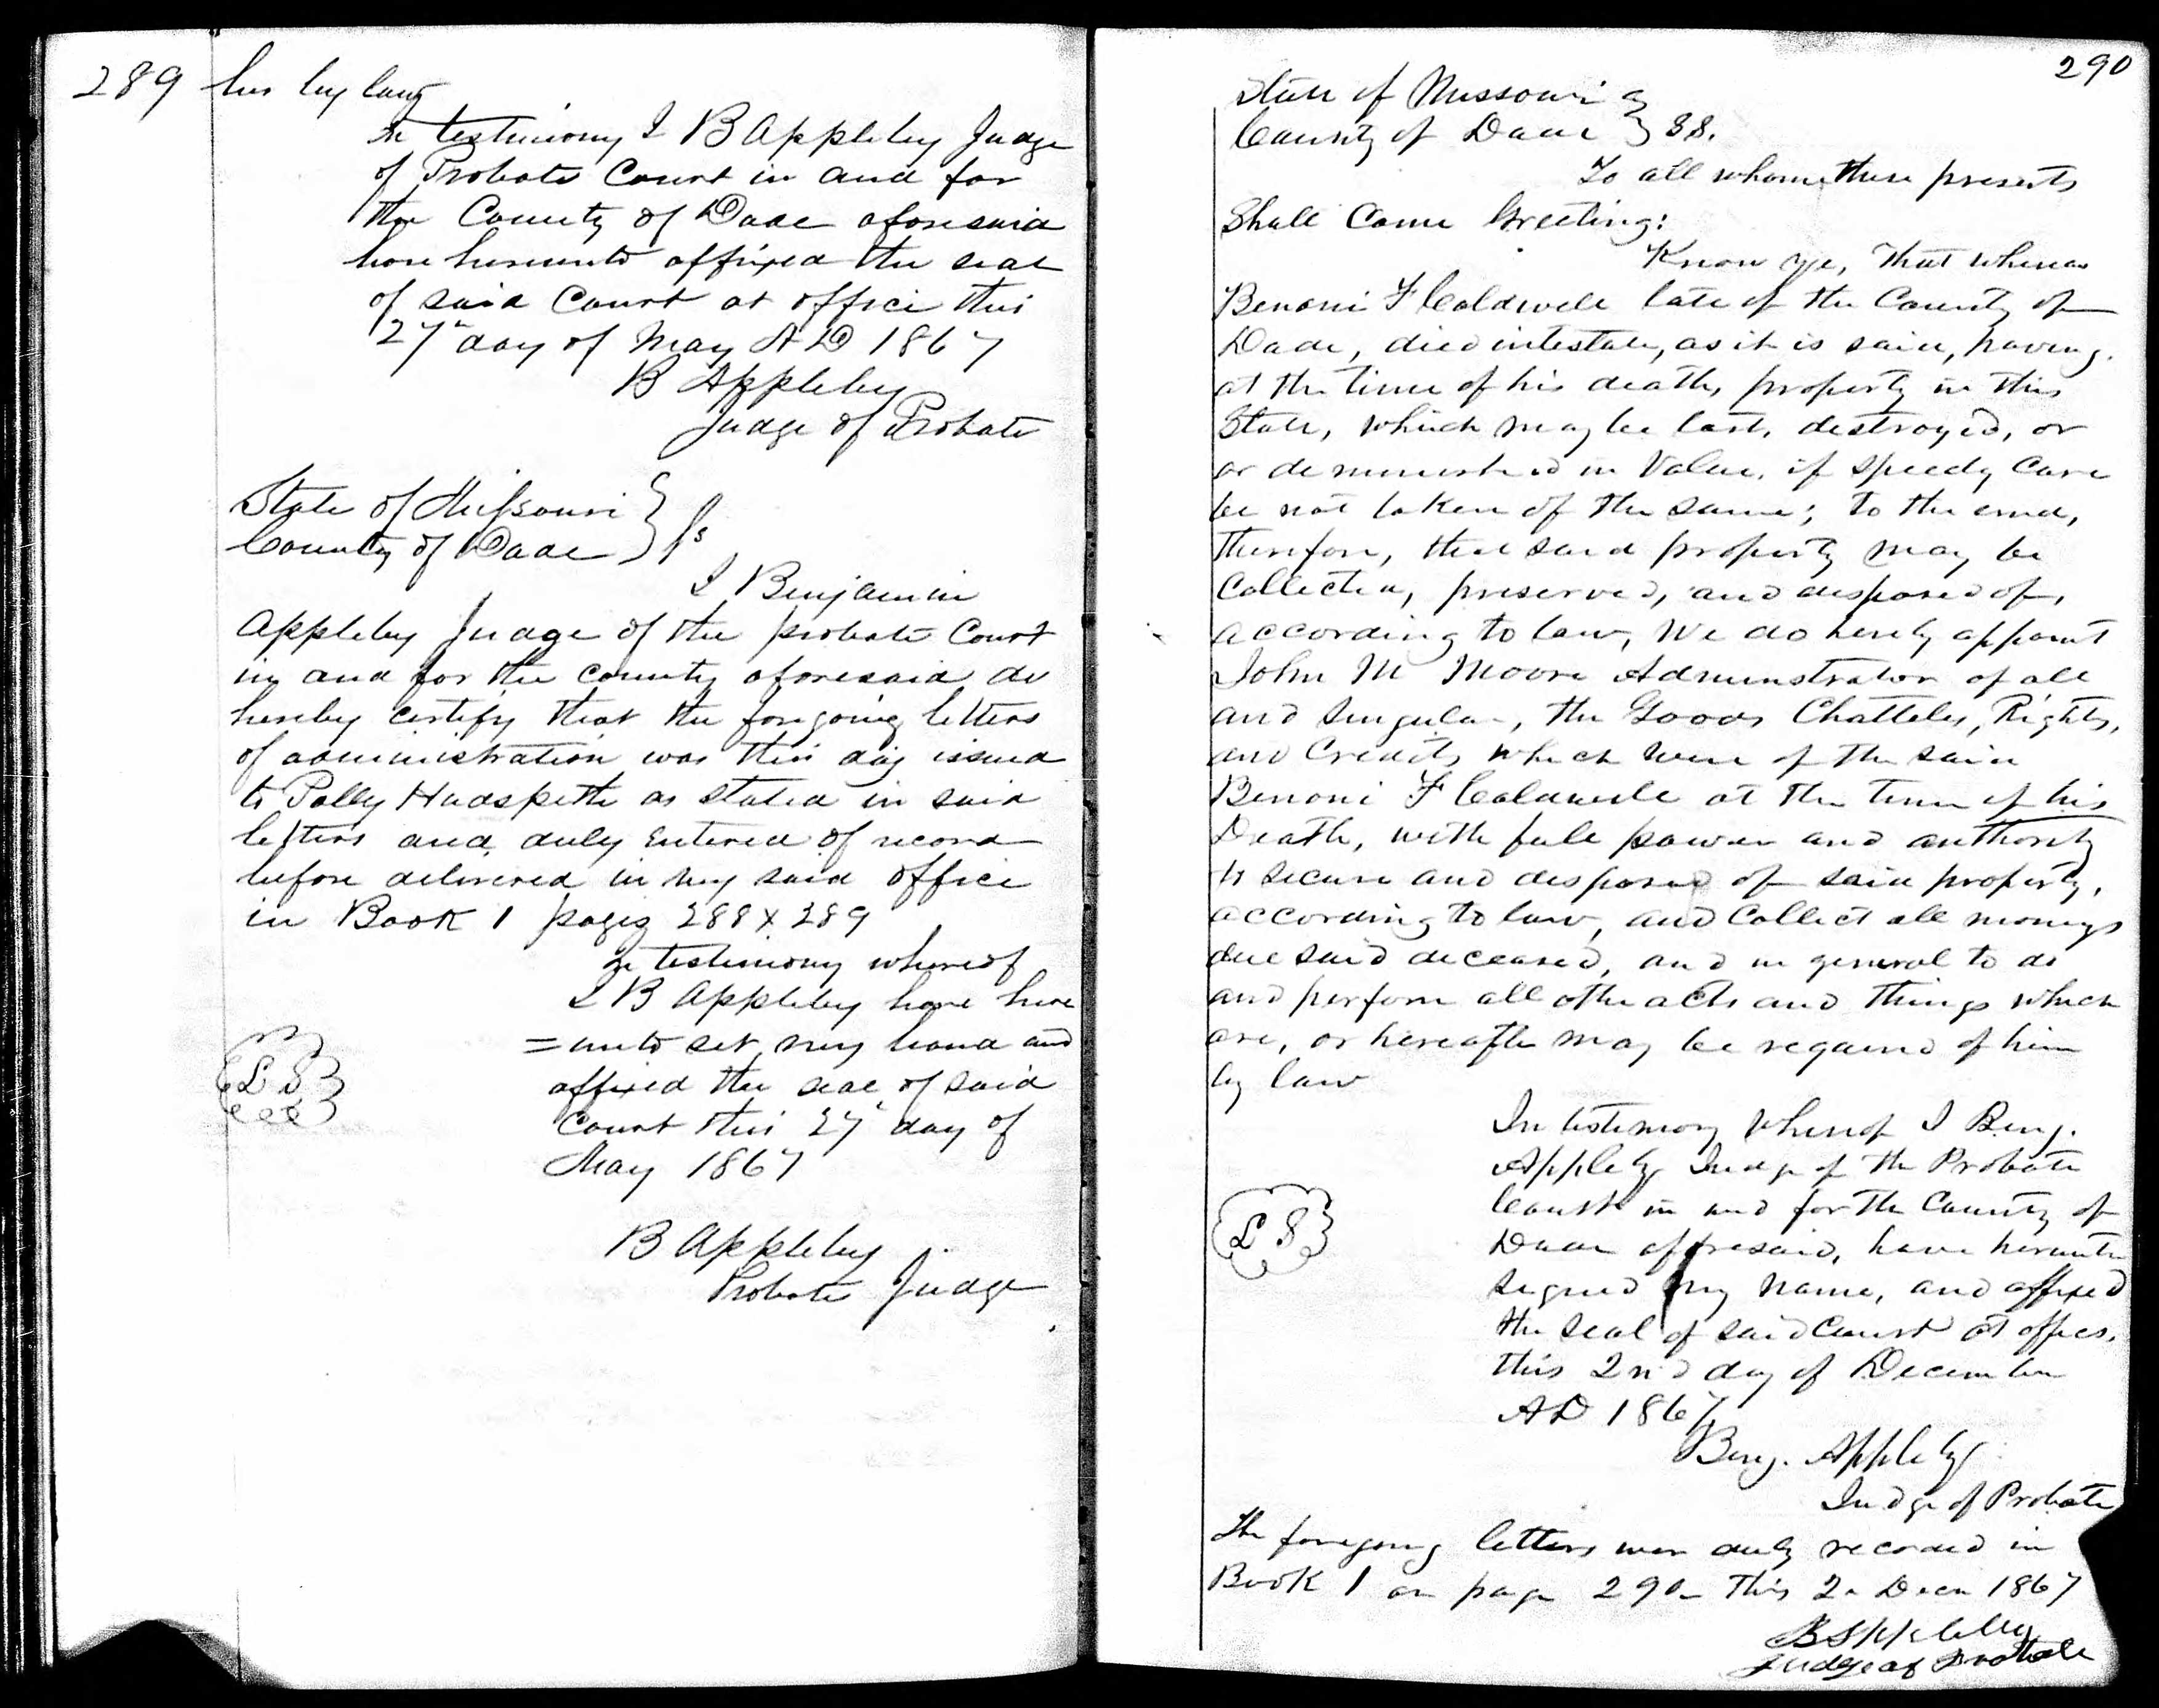 289
her by law
In testimony I B Appleby Judge
of Probate Court in and for
the County of Dade aforesaid
have hereunto affixed the seal
of said Court at office this
27" day of May A D 1867
B Appleby
Judge of Probate
State of Missouri }
County of Dade } ss
I Benjamin
Appleby Judge of the probate Court
in and for the county aforesaid do
hereby certify that the foregoing letters
of administration was this day issued
to Polly Hudspeth as stated in said
letters and duly entered of record
before delivered in my said office
in Book 1 pages 288 & 289
In testimony whereof
I B Appleby have here
=unto set my hand and
affixed the seal of said
Court this 27" day of
May 1867
L S
B Appleby
Probate Judge
290
State of Missouri }
County of Dade } SS.
To all whome these presents
Shall Come Greeting:
Know ye, That whereas
Benoni F Caldwell late of the County of
Dade, died intestate, as it is said, having
at the time of his death, property in this
State, which may be lost, destroyed, or
or deminished in Value, if speedy Care
be not taken of the same; to the end,
Therefore, that said property may be
Collected, preserved, and disposed of,
according to law, We do hereby appoint
John M Moore Administrator of all
and Singular, the Goods Chatteles, Rights,
and Credits which were of the said
Benoni F Caldwell at the time of his
Death, with full power and authority
to secure and disposed of said property,
according to law, and Collect all moneys
due said deceased, and in general to do
and perform all other acts and things which
are, or hereafter may be required of him
by law
In testimony whereof I Benj.
Appleby Judge of the Probate
Court in and for the County of
Dade afforesaid, have hereunto
signed my name, and affixed
the seal of said Court at office,
this 2nd day of December
AD 1867
L S
Benj. Appleby
Judge of Probate
The foregoing letters were duly recorded in
Book 1 on page 290 This 2d Decm 1867
B Appleby
Judge of Probate